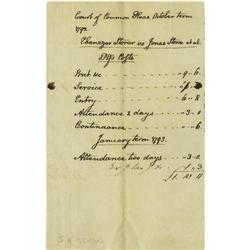 Court of Common Pleas October term
1792
Ebenezer Storer vs Jonas Stone et al
Plfs Costs
Writ &c - 9 - 6
Service
Entry - 6 - 8
Attendance 2 days - 3 - 0
Continuance - 6
January term 1793
Attendance two days - 3 - 2